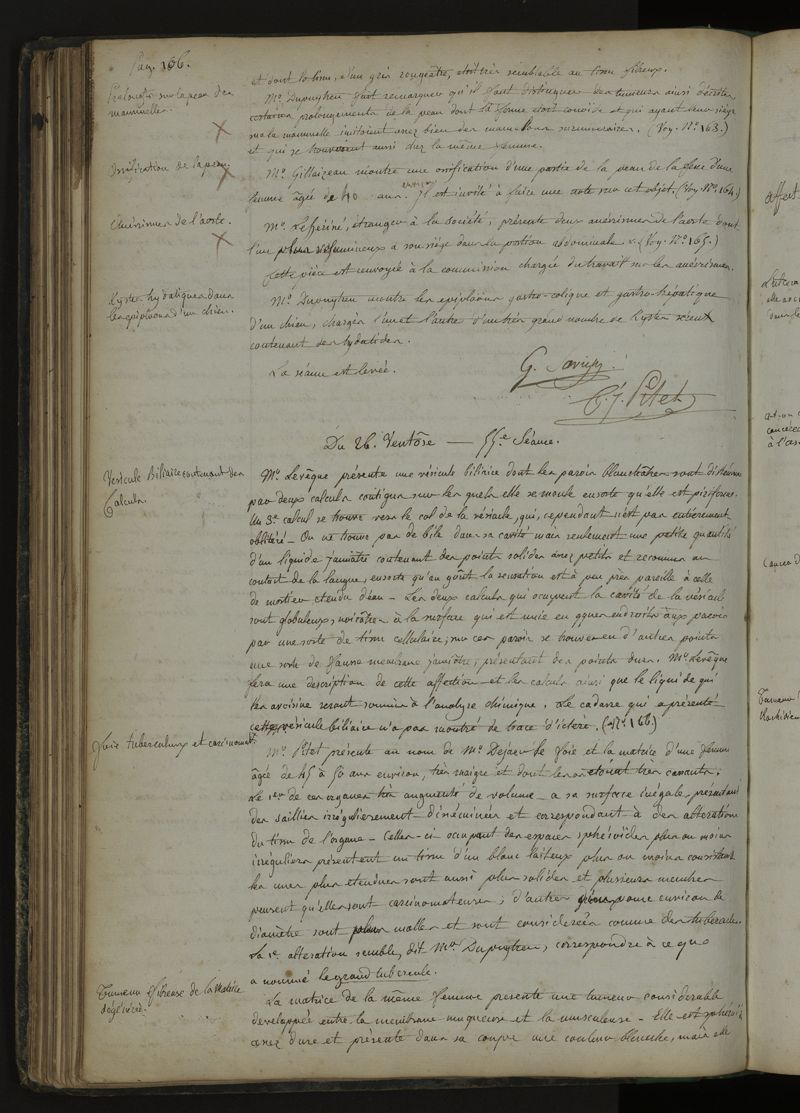 Pag. 166.
et dont le tissu, d'un gris rougeâtre, étoit très semblable au tissu fibreux.
Prolongts sur la peau des
mammelles.
Mr. Dupuytren fait remarquer qu'il faut distinguer des tumeurs ainsi décrites,
certains prolongements de la peau dont la forme étoit conoïde et qui ayant leur siège
sur la mammelle imitoient assez bien des mamelons surnuméraires. (Voy. No. 163.)
et qui se trouvoient aussi chez la même femme.
Ossification de la peau.
Mr. Gillaizeau montre une ossification d'une partie de la peau de la d'une
femme âgée de 40 ans environ. Il est invité à faire une note sur cet objet. (Voy. No. 164.)
Anévrismes de l'aorte.
Mr. étranger à la société, présente deux anévrismes de l'aorte dont
l'un plus volumineux a son siège dans la portion abdominale. (Voy. No. 165.)
Cette pièce est envoyée à la commission chargée du travail sur les anévrismes.
Kystes hydatiques dans
les epiploons d'un chien.
Mr. Dupuytren montre les epiploons gastro-colique et gastro-hépatique
d'un chien, chargés l'un et l'autre d'un très grand nombre de kystes
contenant des hydatides.
La séance est levée.
G.
C. J. Pitet
Du 26. Ventôse — 55.e Séance.
Vésicule Biliaire contenant des
Calculs.
Mr. Levêque présente une vésicule biliaire dont les parois blanchâtres sont distendues
par deux calculs contigus sur lesquels elle se moule ensorte qu'elle est piriforme.
Un 3e calcul se trouve vers le col de la vésicule, qui, cependant n'est pas entièrement
oblitéré — On ne trouve pas de bile dans sa cavité mais seulement une petite quantité
d'un liquide jaunâtre contenant des points solides assez petits et reconnus au
contact de la langue, ensorte qu'au goût la sensation est à peu près pareille à celle
de mortier étendu d'eau — Les deux calculs qui occupent la cavité de la vésicule
sont globuleux, noirâtres à la surface qui est unie en qques endroits aux parois
par une sorte de tissu cellulaire; sur ces parois se trouve en d'autres points
une sorte de fausse membrane jaunâtre, présentant des points durs. Mr. Levêque
fera une description de cette affection et les calculs ainsi que le liquide qui
les avoisine seront soumis à l'analyse chimique. Le cadavre qui a présenté
cette vésicule biliaire n'a pas montré de trace d'ictère. (No. 166)
Foie tuberculeux et carcinomat.
Mr. Pitet présente au nom de Mr. Dejaer le foie et la matrice d'une femme
âgée de 45 à 50 ans environ, très maigre et dont les étoient très
Le 1er de ces organes très augmenté de volume — a sa surface inégale, présentant
des saillies irrégulièrement disséminées et correspondant à des altérations
du tissu de l'organe — Celles-ci occupant des espaces sphéroïdes plus ou moins
irréguliers présentent un tissu d'un blanc laiteux plus ou moins consistant
les unes plus étendues sont aussi plus solides et plusieurs membres
pensent qu'elles sont carcinomateuses, d'autres d'un pouce environ de
diamètre sont plus molles et sont considérées comme des tubercules.
La 1e altération semble, dit Mr. Dupuytren, correspondre à ce que
a nommé le grand tubercule.
Tumeur fibreuse de la Matrice
dégénérée.
La matrice de la même femme présente une tumeur considérable
développée entre la membrane muqueuse et la musculeuse — Elle est sphéroïde
assez dure et présente dans sa coupe une couleur blanche, mais elle